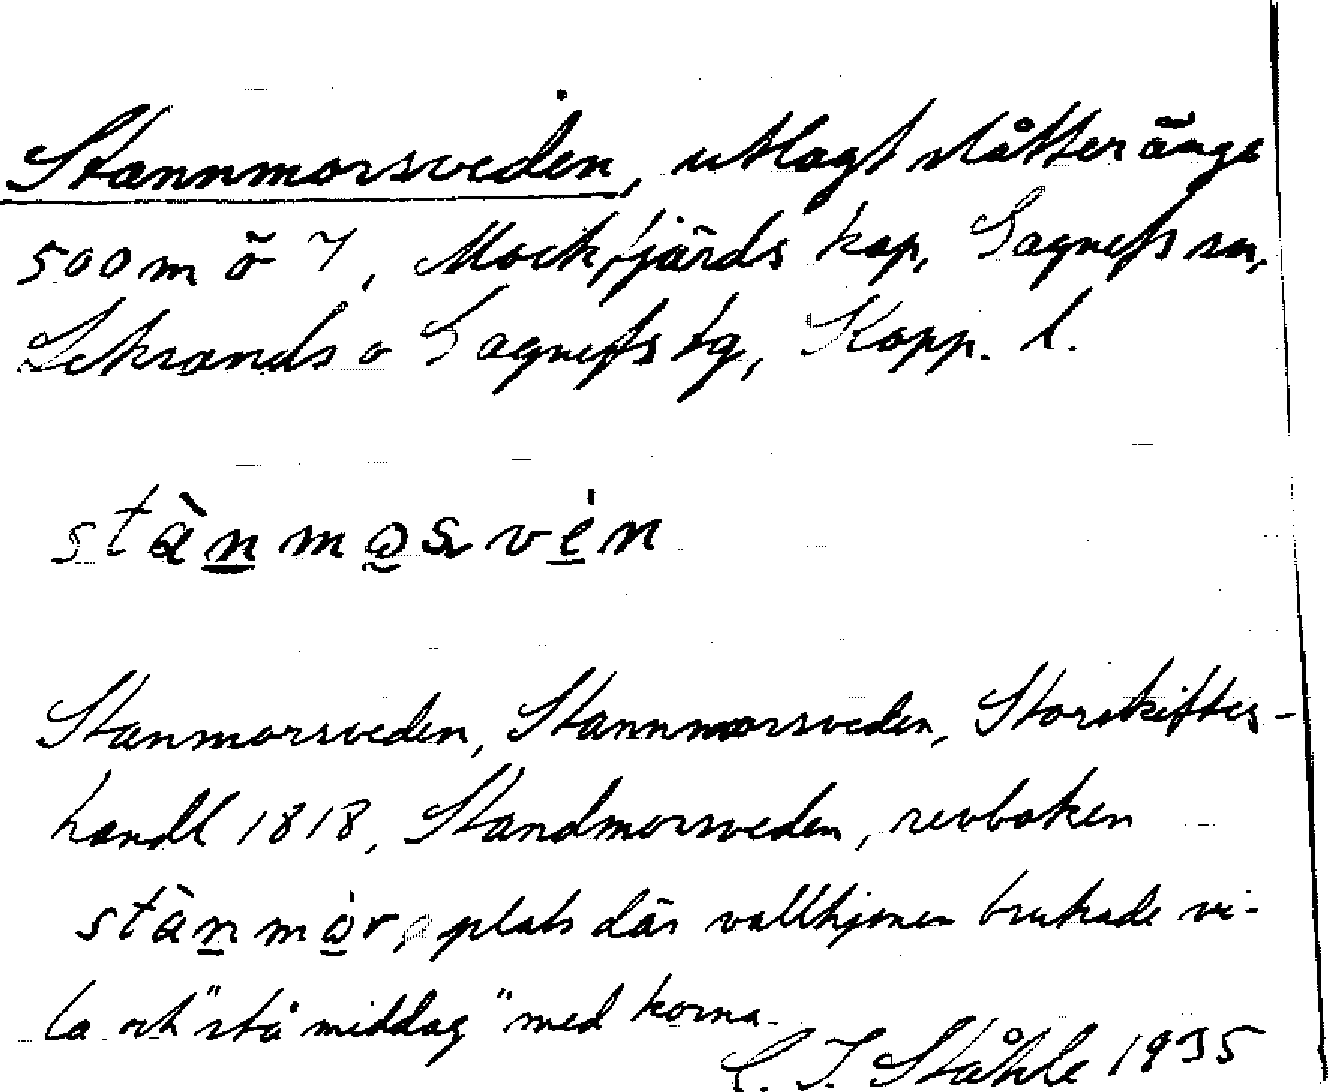 Stannmorsveden, utlagt slåtteränge
500 m ö 7, Mockfjärds kap, Gagnefs sn,
Leksands o Gagnefs tg, Kopp. l.
stànmosvén
Stanmorsveden, Stannmorsveden, Storskiftes-
handl 1818, Standmorsveden, revboken
stànmòr, plats där vallhjonen brukade vi-
la och "stå middag" med korna.
C. I. Ståhle 1935